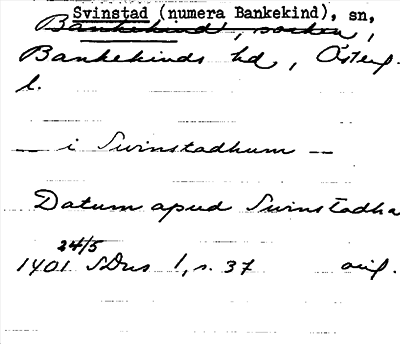 Svinstad (numera Bankekind), sn,
Bankekind, socken,
Bankekinds hd, Östergl.
l.
— i Svinstadhum —
Datum apud Svinstadha
24/5
1401 SDns 1, s. 37 orig.